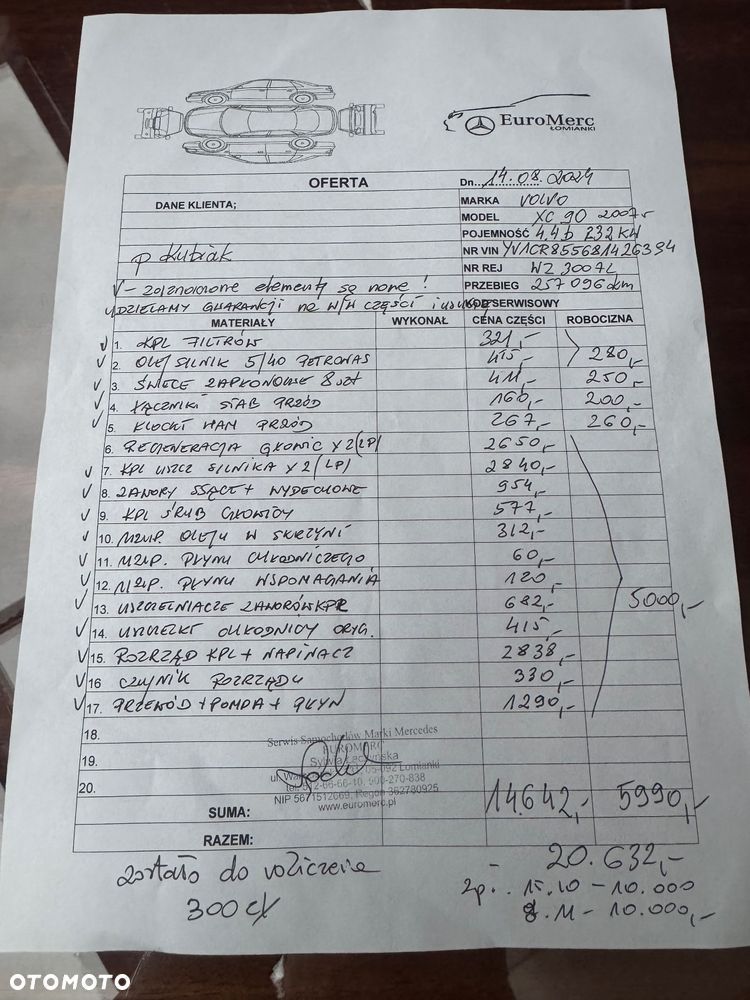 EuroMerc
ŁOMIANKI
OFERTA
Dn. 14.08.2024
DANE KLIENTA;
MARKA VOLVO
MODEL XC 90 2007r
POJEMNOŚĆ 4,4b 232 KW
p Kubiak
NR VIN YV1CR855681426334
NR REJ WZ 3007L
V - zaznaczone elementy są nowe !
PRZEBIEG 257 096 km
UDZIELAMY GWARANCJI na W/W CZĘŚCI i usługę
KOD SERWISOWY
MATERIAŁY WYKONAŁ CENA CZĘŚCI ROBOCIZNA
V 1. KPL FILTRÓW 321,-
V 2. OLEJ SILNIK 5/40 PETRONAS 415,- 280,-
V 3. ŚWIECE ZAPŁONOWE 8 szt 411,- 250,-
V 4. ŁĄCZNIKI STAB PRZÓD 160,- 200,-
V 5. KLOCKI HAM PRZÓD 267,- 260,-
6. REGENERACJA GŁOWIC X2 (LP) 2650,-
V 7. KPL USZCZ SILNIKA X2 (LP) 2840,-
V 8. ZAWORY SSĄCE + WYDECHOWE 954,-
V 9. KPL ŚRUB GŁOWICY 577,-
V 10. UZUP. OLEJU W SKRZYNI 312,-
V 11. UZUP. PŁYNU CHŁODNICZEGO 60,-
V 12. UZUP. PŁYNU WSPOMAGANIA 120,-
V 13. USZCZELNIACZE ZAWORÓW KPL 682,- 5000,-
V 14. USZCZELKI CHŁODNICY ORYG. 415,-
V 15. ROZRZĄD KPL + NAPINACZ 2838,-
V 16 CZUJNIK ROZRZĄDU 330,-
V 17. PRZEWÓD + POMPA + PŁYN 1290,-
18.
Serwis Samochodów Marki Mercedes
EUROMERC
19.
Sylwia
05-092 Łomianki
20.
NIP 5671512669, Regon 362780925
www.euromerc.pl
SUMA: 14.642,- 5990,-
RAZEM:
20.632,-
zostało do rozliczenia
300 zł
2p.. 15.10 - 10.000
8.11 - 10.000,-
OTOMOTO